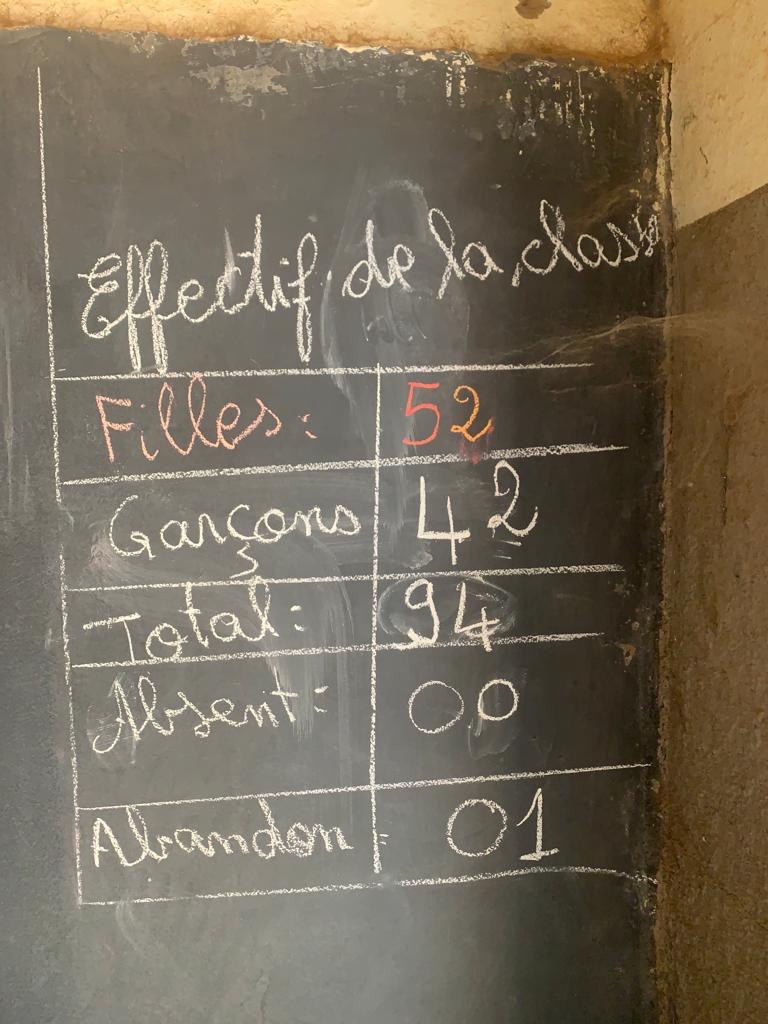 Effectif de la classe
Filles: 52
Garçons 42
Total: 94
Absent: 00
Abandon: 01